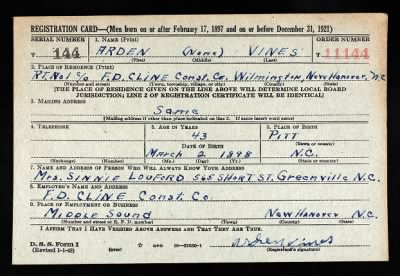 REGISTRATION CARD—(Men born on or after February 17, 1897 and on or before December 31, 1921)
SERIAL NUMBER 1. NAME (Print) ORDER NUMBER
T 144 ARDEN (None) VINES T 11144
(First) (Middle) (Last)
2. PLACE OF RESIDENCE (Print)
RT. No1 c/o F.D. CLINE Const. Co. Wilmington, New Hanover, N.C.
(Number and street) (Town, township, village, or city) (County) (State)
[THE PLACE OF RESIDENCE GIVEN ON THE LINE ABOVE WILL DETERMINE LOCAL BOARD
JURISDICTION; LINE 2 OF REGISTRATION CERTIFICATE WILL BE IDENTICAL]
3. MAILING ADDRESS
Same
[Mailing address if other than place indicated on line 2. If same insert word same]
4. TELEPHONE 5. AGE IN YEARS 6. PLACE OF BIRTH
43 PITT
DATE OF BIRTH (Town or county)
March 2 1898 N.C.
(Exchange) (Number) (Mo.) (Day) (Yr.) (State or country)
7. NAME AND ADDRESS OF PERSON WHO WILL ALWAYS KNOW YOUR ADDRESS
Mrs. SINNIE 565 SHORT ST. Greenville N.C.
8. EMPLOYER'S NAME AND ADDRESS
F.D. CLINE Const. Co.
9. PLACE OF EMPLOYMENT OR BUSINESS
MIDDLE Sound New Hanover N.C.
(Number and street or R. F. D. number) (Town) (County) (State)
I AFFIRM THAT I HAVE VERIFIED ABOVE ANSWERS AND THAT THEY ARE TRUE.
D. S. S. Form 1
(Revised 1-1-42) GPO 16—21630-1 Arden Vines
(Registrant's signature)